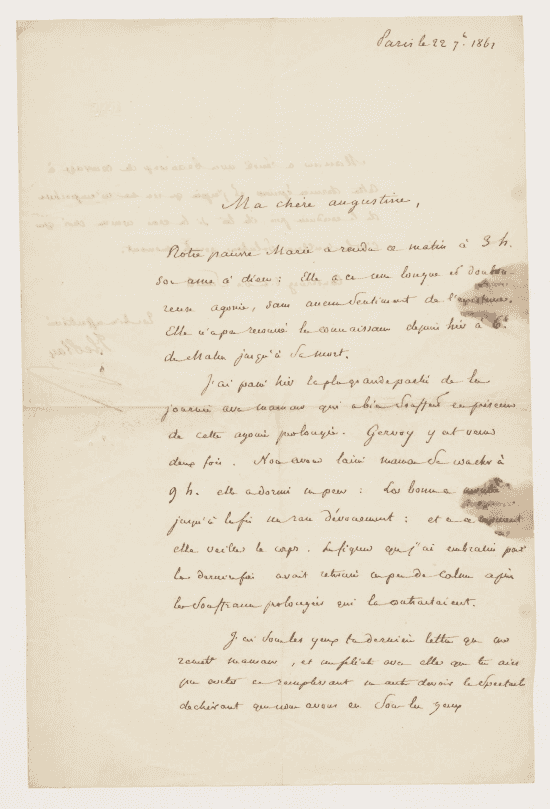 Paris le 22 7b. 1861
Ma chère augustine,
Notre pauvre Marie a rendu ce matin à 3 h.
son ame à dieu : Elle a eu une longue et doulou
reuse agonie, sans aucun sentiment de l'existence.
Elle n'a pas recouvré la connaissance depuis hier à 6h
du Matin jusqu'à sa mort.
J'ai passé hier la plus grande partie de la
journée avec maman qui a bien souffert en présence
de cette agonie prolongée. Gervoy y est venu
deux fois. Nous avons laissé maman se coucher à
9 h. elle a dormi un peu : La bonne a
jusqu'à la fin un rare dévouement : et en ce moment
elle veille le corps. La figure que j'ai embrassée pour
la dernière fois avait retrouvé un peu de calme après
les souffrances prolongées qui la contractaient.
J'ai sous les yeux ta dernière lettre que me
remet maman, et me félicite avec elle que tu aies
pu éviter en remplissant un autre devoir le spectacle
déchirant que nous avons eu sous les yeux